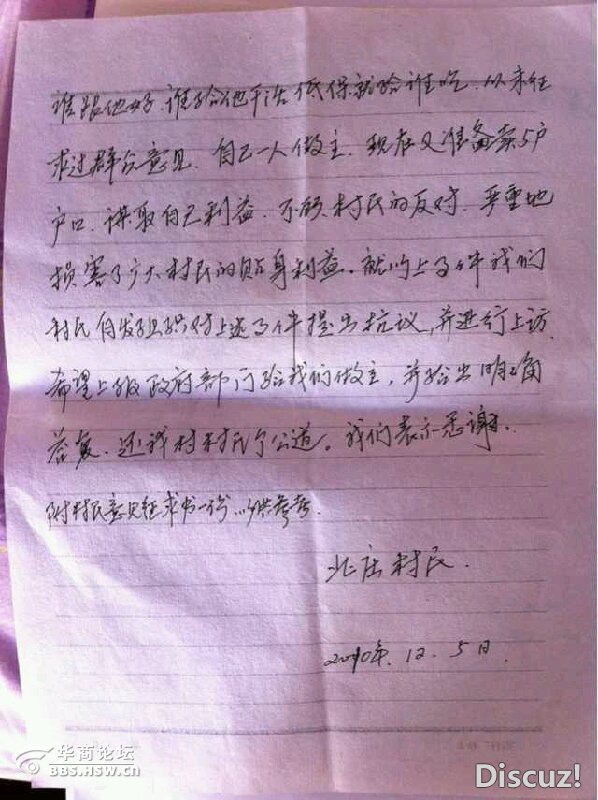 谁跟他好谁给他干活低保就给谁吃.从未征
求过群众意见.自己一人做主.现在又准备卖5户
户口.谋取自己利益.不顾村民的反对.严重地
损害了广大村民的贴身利益。就以上事件我们
村民自发组织对上述事件提出抗议,并进行上访.
希望上级政府部门给我们做主,并给出明确
答复.还我村村民个公道。我们表示感谢.
附村民意见征求书一份.以供参考.
北庄村民.
2010年.12.5日.
华商论坛
BBS.HSW.CN
Discuz!